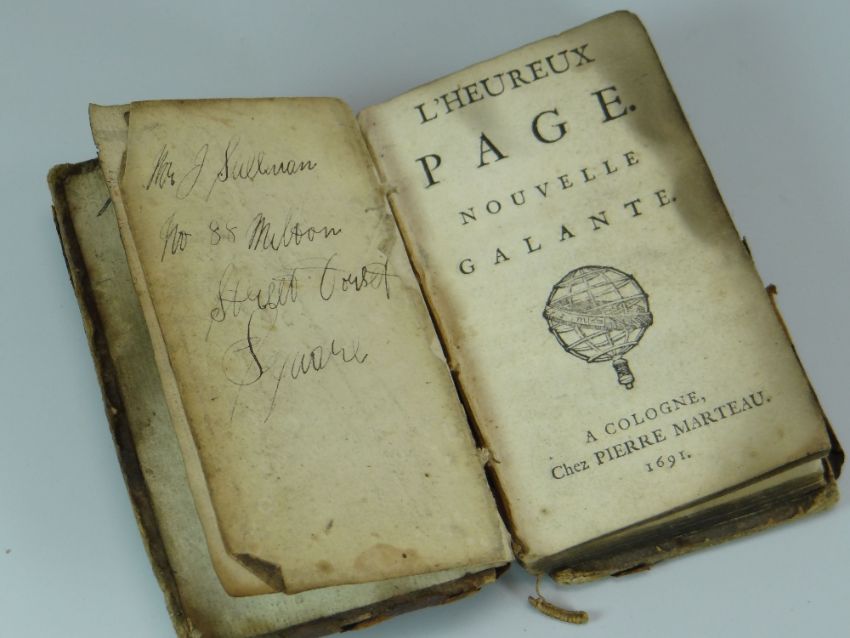 Mr J Sullman
No 88 Milton
Street Dorset
Square
L'HEUREUX
PAGE.
NOUVELLE
GALANTE.
A COLOGNE,
Chez PIERRE MARTEAU.
1691.